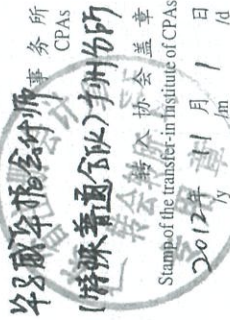 毕马威华振会计师 事务所
CPAs
(特殊普通合伙)广州分所
转入协会盖章
Stamp of the transfer-in Institute of CPAs
2012年 11月 1日
/y /m /d